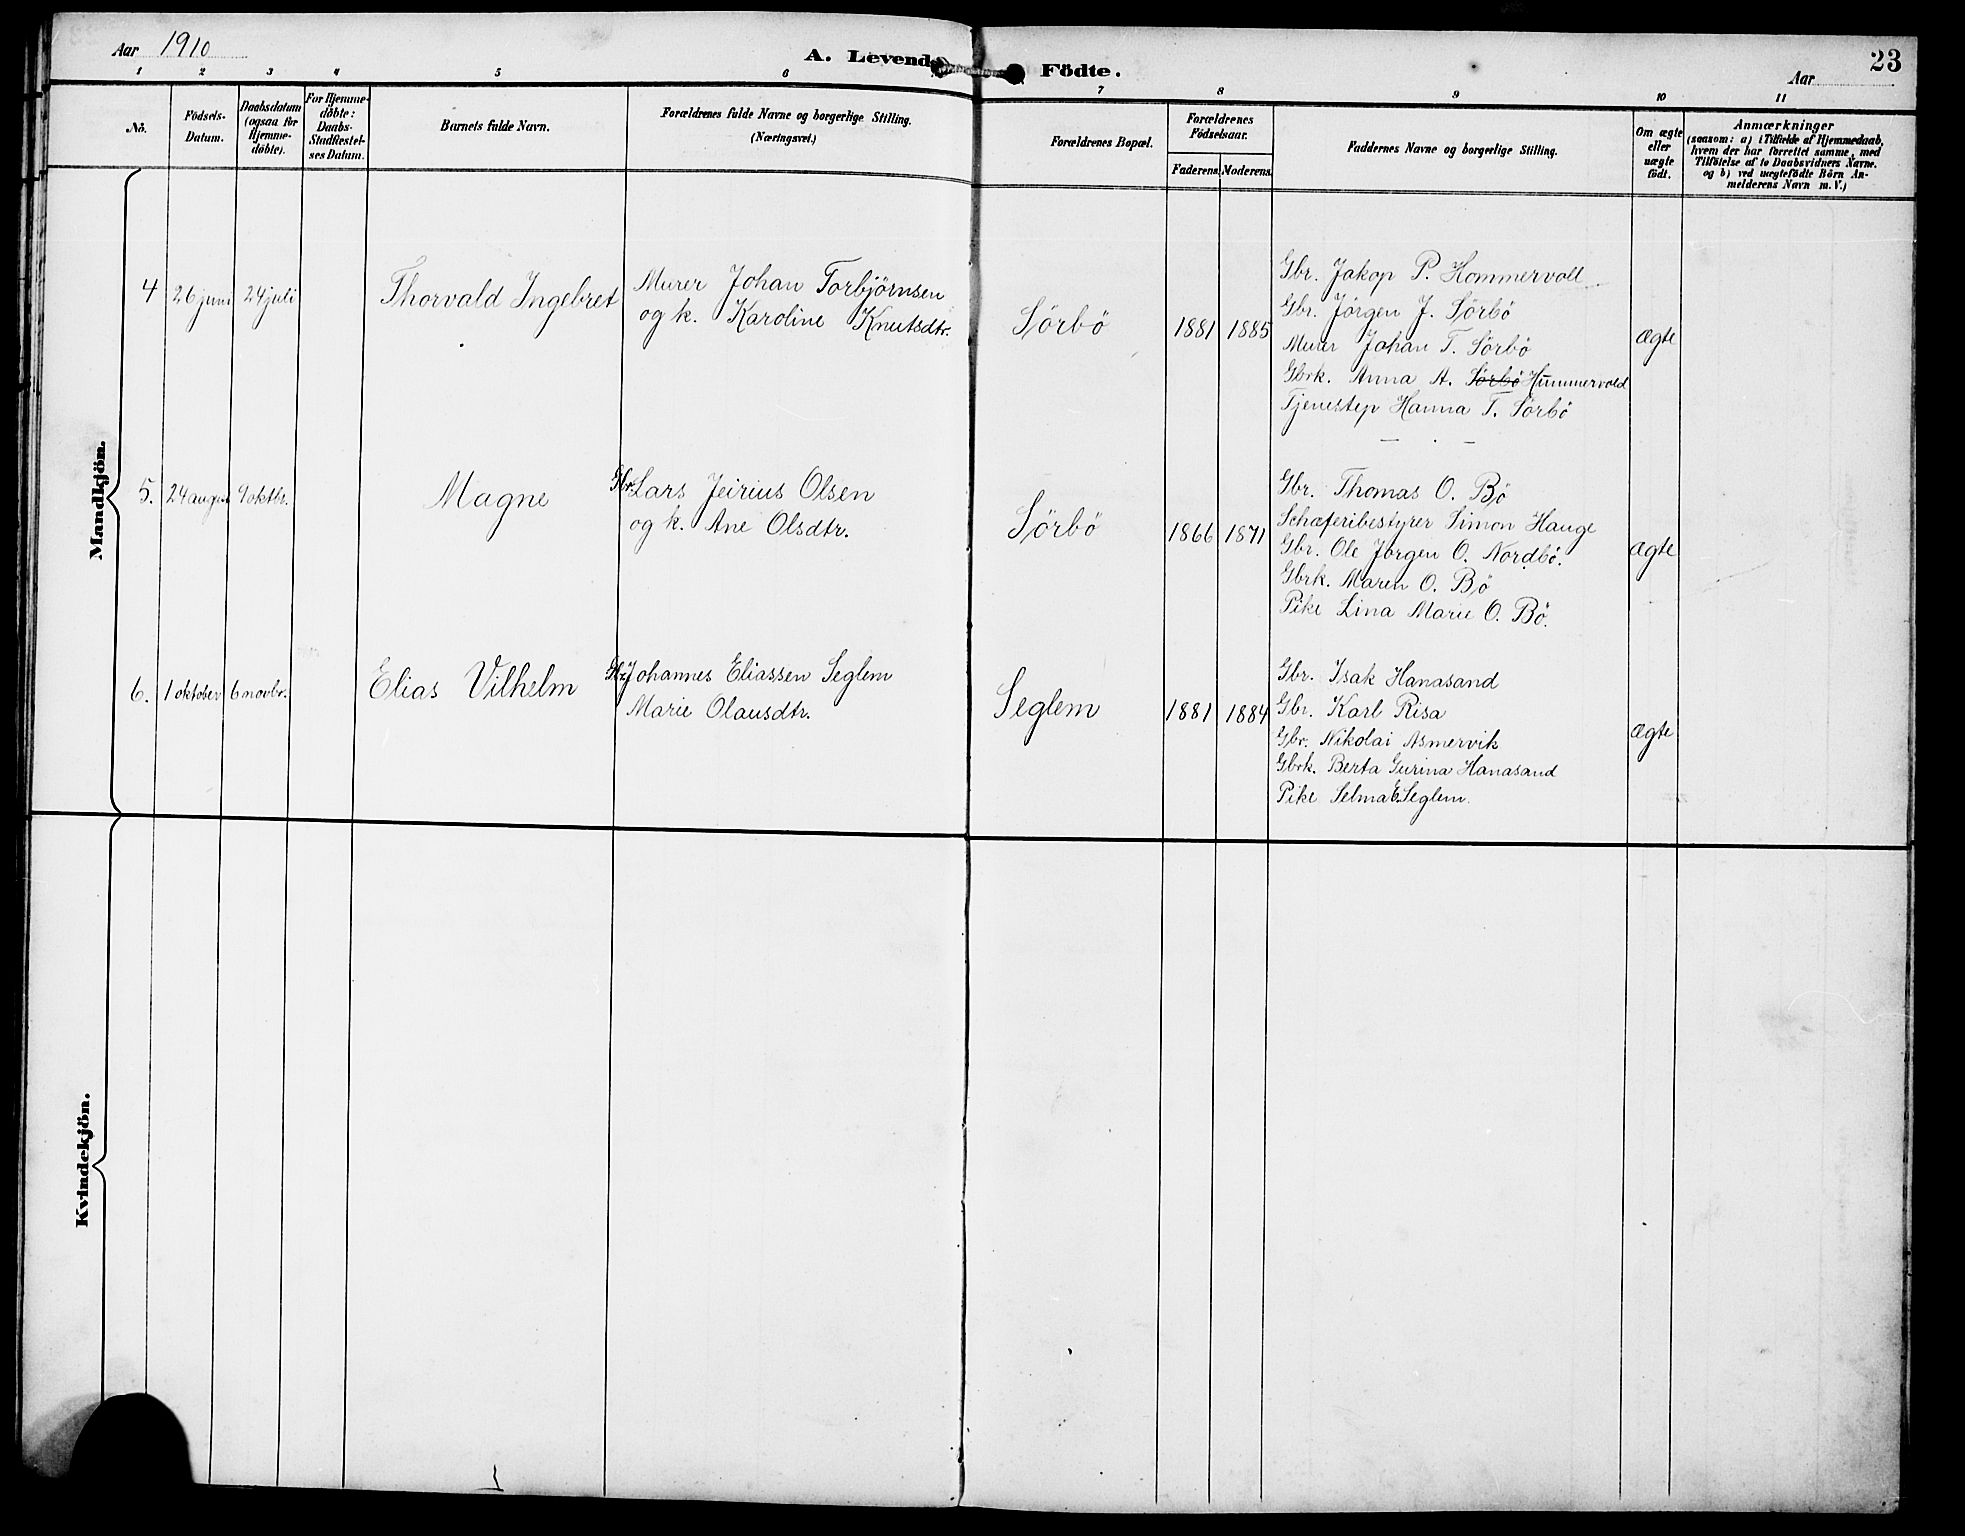 Aar 1910
A. Levende Födte.
Aar
23
1 2 3 4 5 6 7 8 9 10 11
No.
Födsels-
Datum.
Daabsdatum
(ogsaa for
Hjemme-
döbte).
For Hjemme-
döbte:
Daabs-
Stadfestel-
ses Datum.
Barnets fulde Navn.
Forældrenes fulde Navne og borgerlige Stilling.
(Næringsvei.)
Forældrenes Bopæl.
Forældrenes
Födselsaar.
Faderens. Moderens.
Faddernes Navne og borgerlige Stilling.
Om ægte
eller
uægte
födt.
Anmærkninger
(saasom: a) i Tilfælde af Hjemmedaab,
hvem der har forrettet samme, med
Tilföielse af to Daabsvidners Navne.
og b) ved uægtefödte Börn An-
melderens Navn m. V.)
Mandkjön.
4 26 juni 24 juli
Thorvald Ingebret
Murer Johan Torbjørnsen
og k. Karoline Knutsdtr.
Sörbö
1881 1885
Gbr. Jakop P. Hommervoll
Gbr. Jörgen J. Sörbö
Murer Johan T. Sörbö
Gbrk. Anna A. Sörbö Hummervold
Tjenestep Hanna T. Sörbö
ægte
5. 24 august 9 oktbr.
Magne
Gbr. Lars Jeirius Olsen
og k. Ane Olsdtr.
Sörbö
1866 1871
Gbr. Thomas O. Bö
Schæferibestyrer Simon Hauge
Gbr. Ole Jörgen O. Nordbö.
Gbrk. Maren O. Bö
Pike Lina Marie O. Bö.
ægte
6. 1 oktober 6 novbr.
Elias Vilhelm
Gbr. Johannes Eliassen Seglem
Marie Olausdtr.
Seglem
1881 1884
Gbr. Isak Hanasand
Gbr. Karl Risa
Gbr. Nikolai Asmervik
Gbrk. Berta Gurina Hanasand
Pike Selma E. Seglem.
ægte
Kvindekjön.